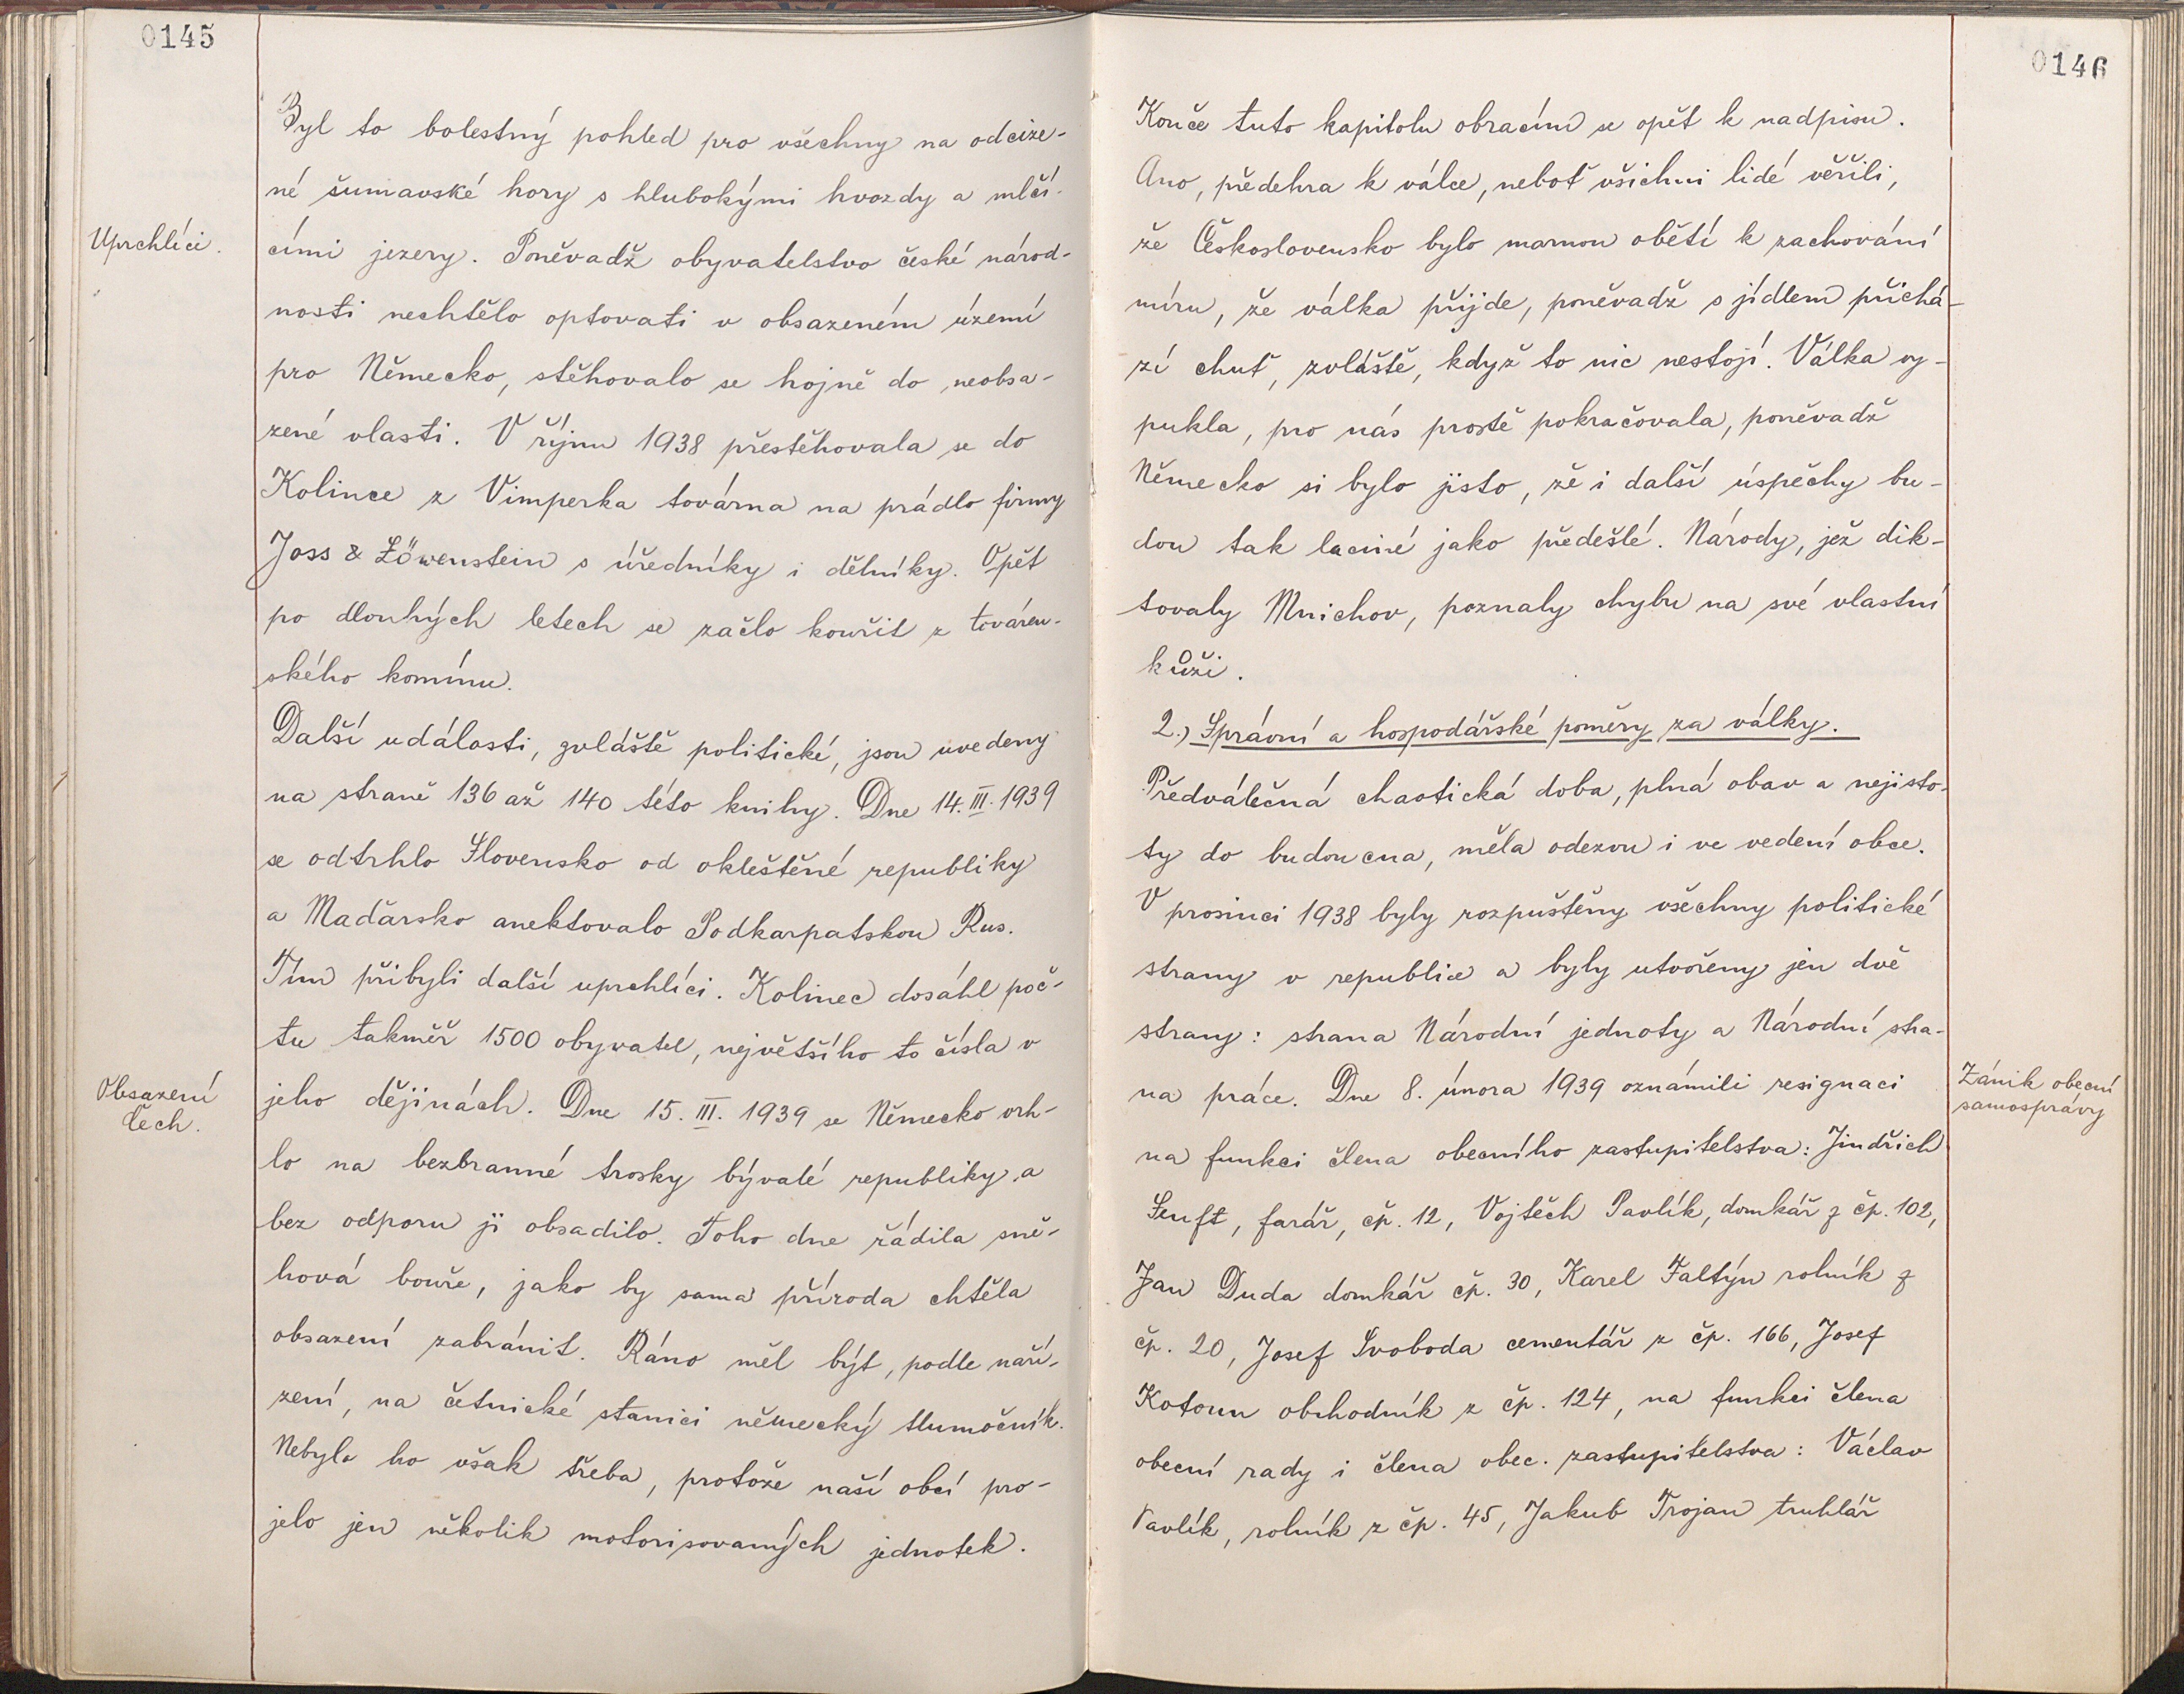 0145
Byl to bolestný pohled pro všechny na odcize-
né šumavské hory s hlubokými hvozdy a mlčí-
Uprchlíci.
cími jezery. Poněvadž obyvatelstvo české národ-
nosti nechtělo optovati v obsazeném území
pro Německo, stěhovalo se hojně do neobsa-
zené vlasti. V říjnu 1938 přestěhovala se do
Kolince z Vimperka továrna na prádlo firmy
Joss & Löwenstein s úředníky i dělníky. Opět
po dlouhých letech se začlo kouřit z továren-
ského komínu.
Další události, zvláště politické, jsou uvedeny
na straně 136 až 140 této knihy. Dne 14. III. 1939
se odtrhlo Slovensko od okleštěné republiky
a Maďarsko anektovalo Podkarpatskou Rus.
Tím přibyli další uprchlíci. Kolinec dosáhl poč-
tu takměř 1500 obyvatel, největšího to čísla v
Obsazení
Čech.
jeho dějinách. Dne 15. III. 1939 se Německo vrh-
lo na bezbranné trosky bývalé republiky a
bez odporu ji obsadilo. Toho dne řádila sně-
hová bouře, jako by sama příroda chtěla
obsazení zabránit. Ráno měl být, podle naří-
zení, na četnické stanici německý tlumočník.
Nebylo ho však třeba, protože naší obcí pro-
jelo jen několik motorisovaných jednotek.
0146
Konče tuto kapitolu obracím se opět k nadpisu.
Ano, předehra k válce, neboť všichni lidé věřili,
že Československo bylo marnou obětí k zachování
míru, že válka přijde, poněvadž s jídlem přichá-
zí chuť, zvláště, když to nic nestojí. Válka vy-
pukla, pro nás prostě pokračovala, poněvadž
Německo si bylo jisto, že i další úspěchy bu-
dou tak laciné jako předešlé. Národy, jež dik-
tovaly Mnichov, poznaly chybu na své vlastní
kůži.
2.) Správní a hospodářské poměry za války.
Předválečná chaotická doba, plná obav a nejisto-
ty do budoucna, měla odezvu i ve vedení obce.
V prosinci 1938 byly rozpuštěny všechny politické
strany v republice a byly utvořeny jen dvě
strany: strana Národní jednoty a Národní stra-
na práce. Dne 8. února 1939 oznámili resignaci
Zánik obecní
samosprávy
na funkci člena obecního zastupitelstva: Jindřich
Senft, farář, čp. 12, Vojtěch Pavlík, domkář z čp. 102,
Jan Duda domkář čp. 30, Karel Faltýn rolník z
čp. 20, Josef Svoboda cementář z čp. 166, Josef
Kotoun obchodník z čp. 124, na funkci člena
obecní rady i člena obec. zastupitelstva: Václav
Pavlík, rolník z čp. 45, Jakub Trojan truhlář